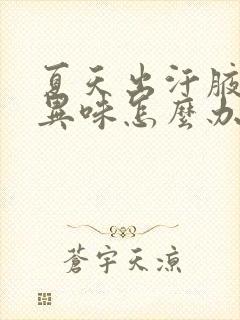 夏天出汗腋
異味怎麼办
蒼宇天涼